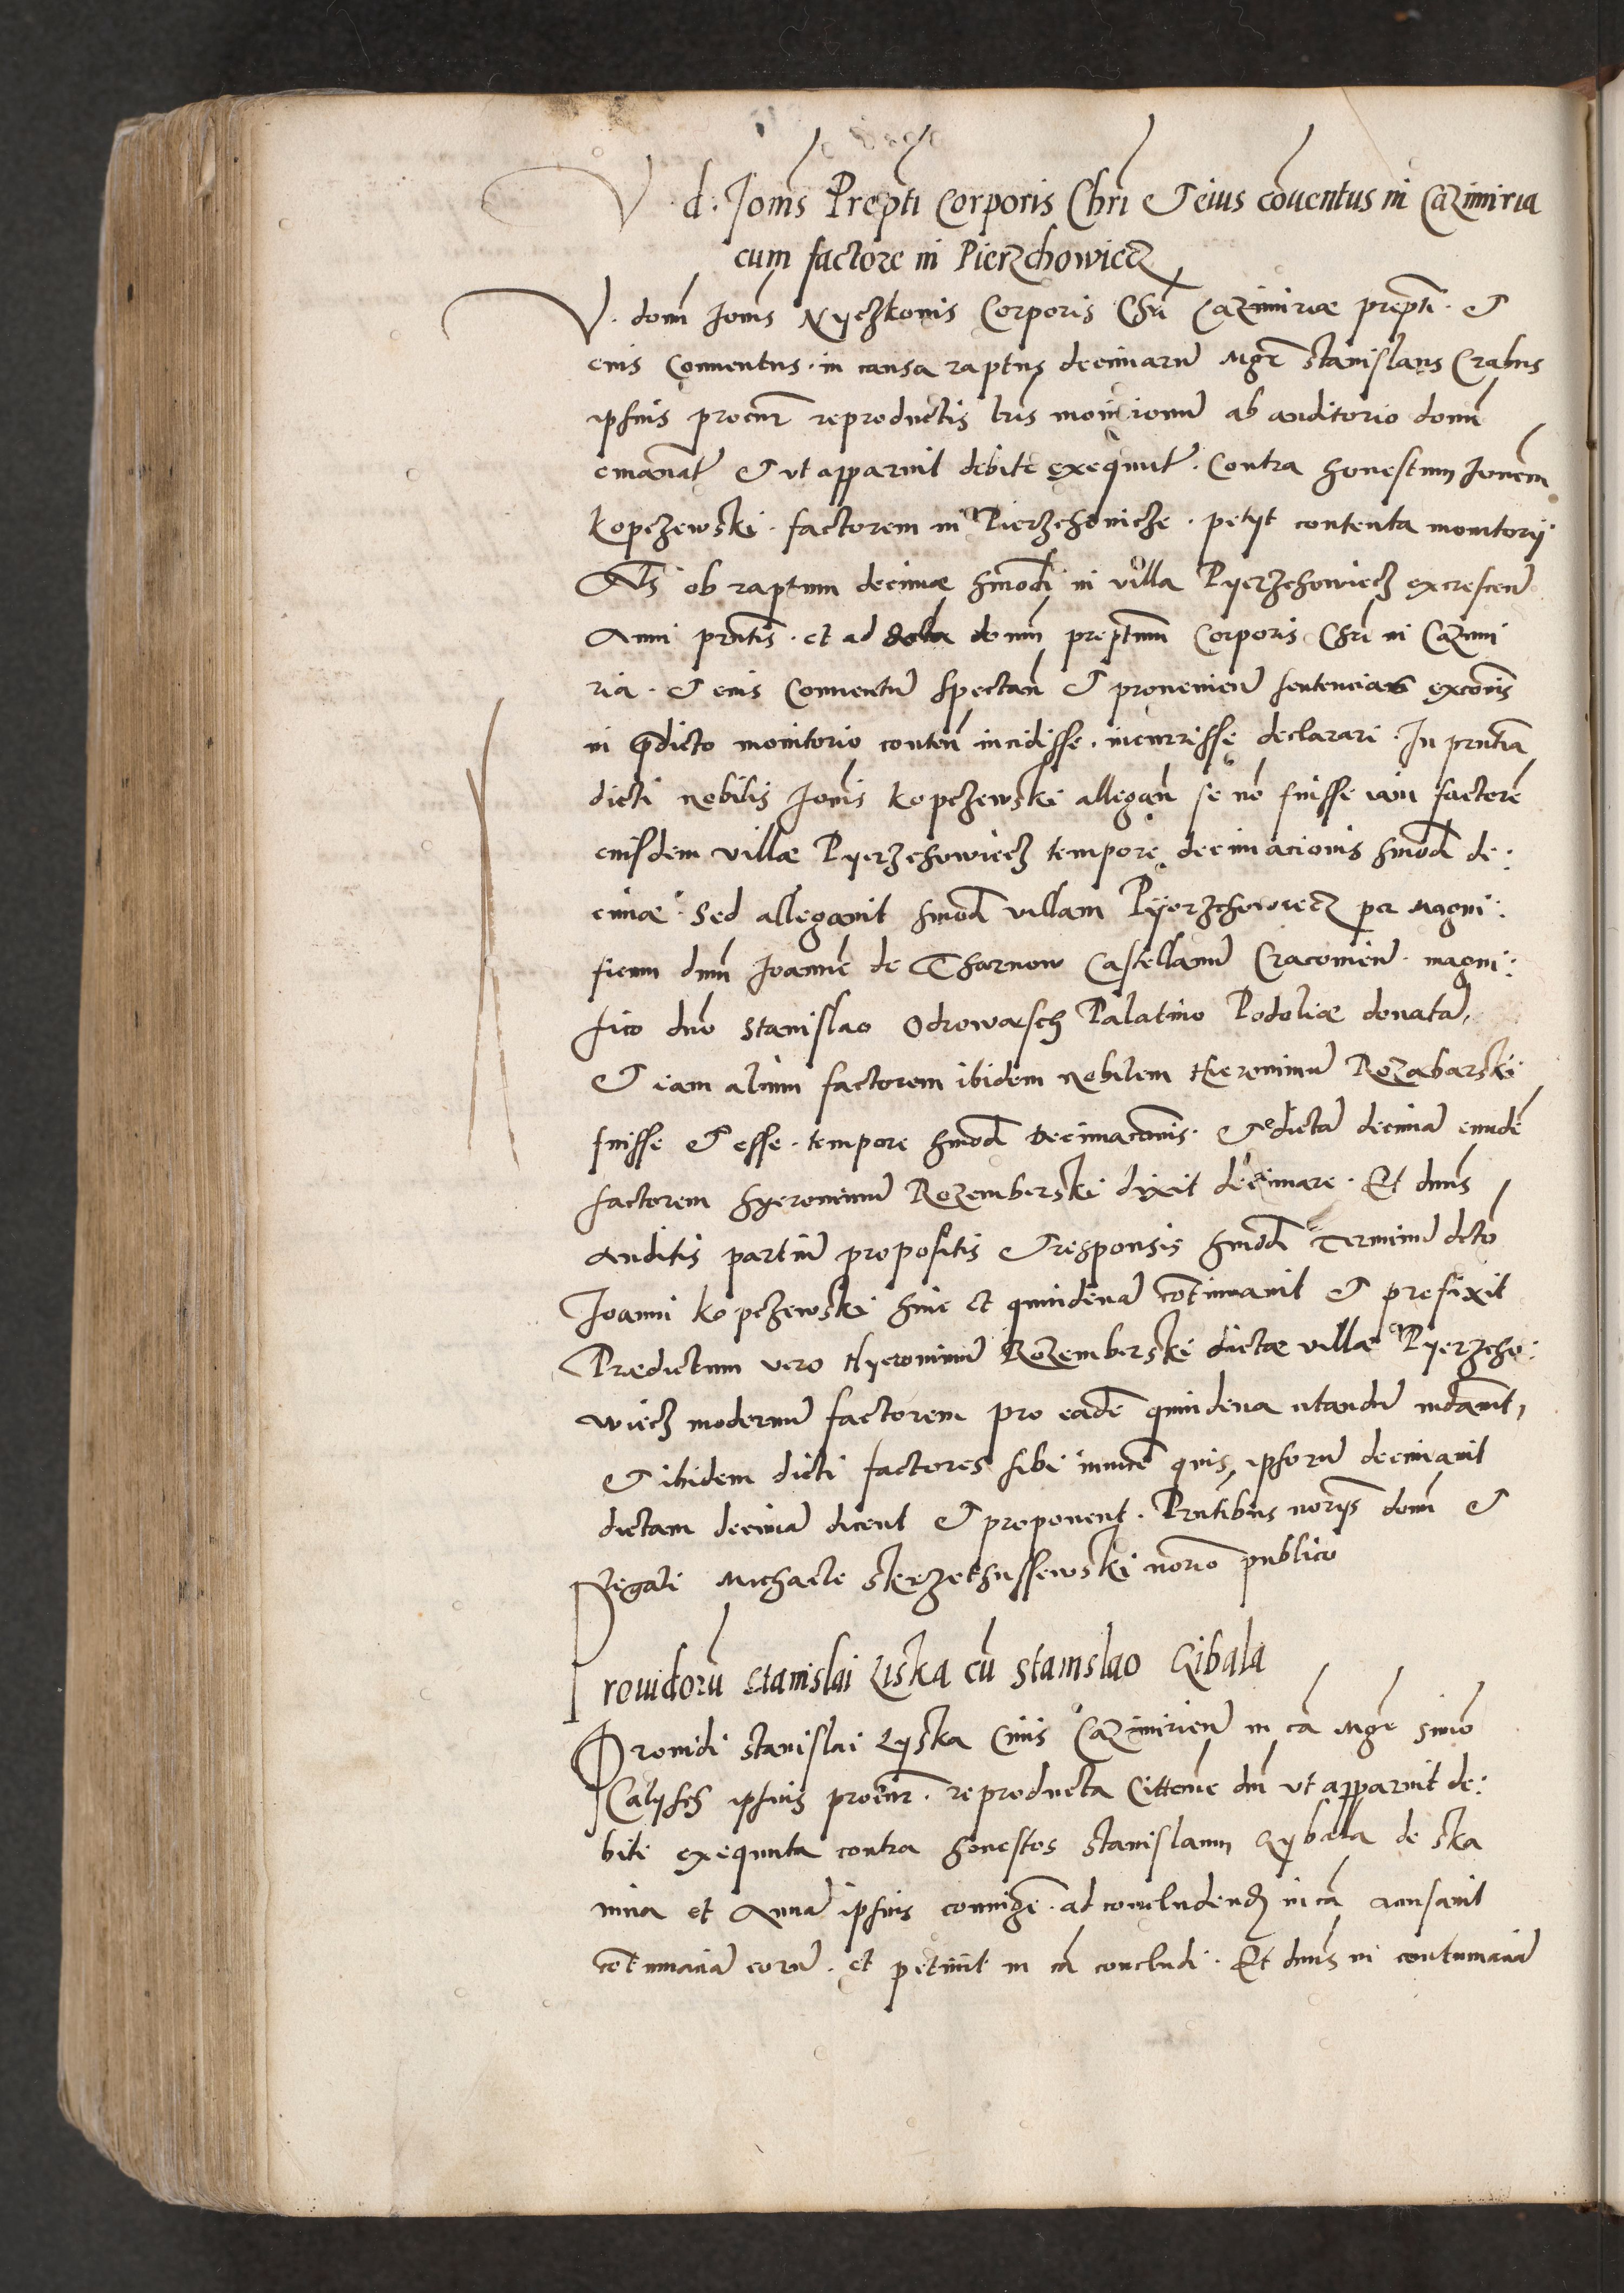 V. d. Joīs Prepti Corporis Chri & eius cōventus in Cazimiria
cum factore in Pierzchowiecz
V. domī Joīs Nyczkonis Corporis Chri Cazimiriæ prepti. &
eius Conventus. in causa raptus decimarū Mgr̄ Stanislaus Crabus
ipsius procur̄ reproductis lrīs monicionū ab auditorio domī
emanat̄ & ut apparuit debite exequut̄. Contra honestum Joānem
Kopczewski. factorem in Pierzchovicze. petyt contenta monitorij
Alīs ob raptum decimæ hmōdi in villa Pyerzchowiecz excrescen̄
Anni pn̄tis. et ad domū preptum Corporis Chri in Cazimi
ria. & eius Conventū spectan̄ & provenien̄ sentencias excōis
in p̄dicto monitorio conten̄ incidisse. incurrisse declarari. In pn̄tia
dicti nobilis Joīs Kopczewski allegan̄ se nō fuisse iam factorē
eiusdem villæ Pyerzchowiecz tempore decimacionis hmōd de:
cimæ. Sed allegavit hmōd villam Pyerzchowiecz per Magni:
ficum dnū Joannē de Tharnow Castellanū Cracovien̄. magni:
fico dnō Stanislao Odrowasch Palatino Podoliæ donatā,
& iam alium factorem ibidem nobilem Hieronimū Rozabarski
fuisse & esse. tempore hmōd Decimacōnis. & dictā decimā eundē
factorem Hyeronimū Rozemberski dixit decimare. Et dnus
auditis partiū propositis & responsis hmōdi Terminū dicto
Joanni Kopczewski hinc et quindenā cōtinuavit & prefixit
Prædictum vero Hyeronimū Rozemberski dictæ villæ Pyerzcho:
wiecz modernū factorem pro eadē quindena citandū mdavit,
& ibidem dicti factores sibi invicē quis ipsorū decimavit
dictam decimā dicent & proponent. Pn̄tibus norijs domī &
Legali Michaele Skrzethussewski norio publico
Providorū Stanislai Liska cū Stanislao Ribala
Providi Stanislai Lyska Civis Cazimirien̄ in cā Mgr̄ Simō
Calysch ipsius procur̄. reproducta Cittōne dnī ut apparuit de:
bite exequuta contra honestos Stanislaum Rybala de Ska
vina et Annā ipsius coniugē. ad concludendū in cā accusavit
cōtumaciā eorū. et petiit in cā concludi. Et dnus in contumaciā